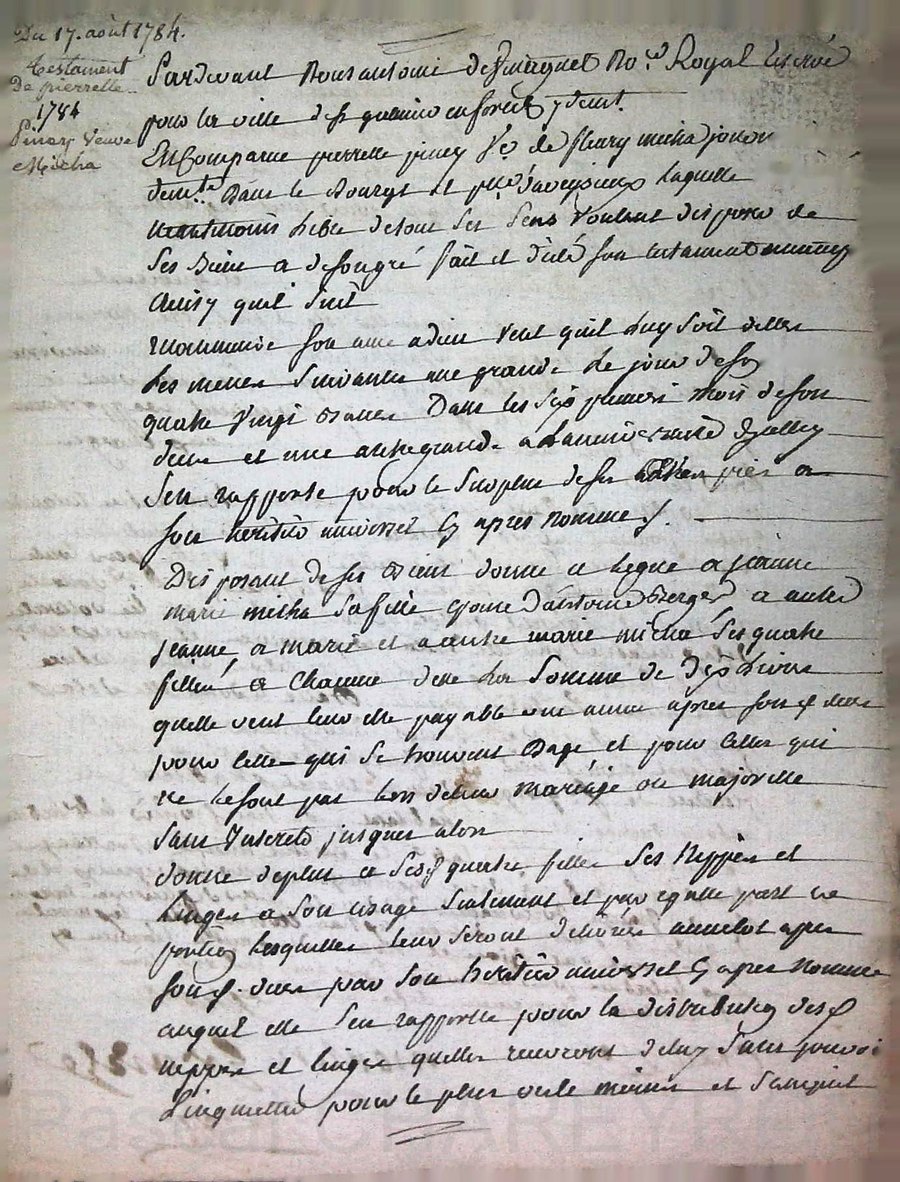 Du 17. août 1784.
testament
De pierrette
1784
Pinay Veuve
Micha
Pardevant Nous antoine Royal
pour la ville de st galmier en forest
Est Comparue pierrette piney Ve. de fleury micha
Dans le Bourg et laquelle
libre de tous ses sens voulant disposer de
ses Biens a de son gré fait et dicté son testament
ainsy quil suit
recommande son ame a dieu veut quil luy soit
les messes suivantes une grande le jour de son
quatre vingt basses Dans les six premiers mois de son
deces et une autre grande a
sen rapporte pour le surplus de ses a
son heritier universel cy apres nommé
Disposant de ses Biens donne et legue a jeanne
marie micha sa fille epouse d'antoine Berger a autre
jeanne, a marie et a autre marie micha ses quatre
filles, a chacune delle la somme de dix livres
quelle veut leur etre payable une année apres son d. deces
pour celles qui se trouvent Dage et pour celles qui
ne le sont pas lors de leur mariage ou majorité
sans interets jusques alors
donne deplus a sesd. quatre filles ses Nippes et
linges a son usage seulement et par egalle part et
portion lesquelles leur seront delivrés aussitot apres
sond. deces par son heritier universel cy apres nommé
auquel elle sen rapporte pour la distribution desd.
nippes et linges quelles recevront de luy sans pouvoir
linquietter pour le plus ou le moins et